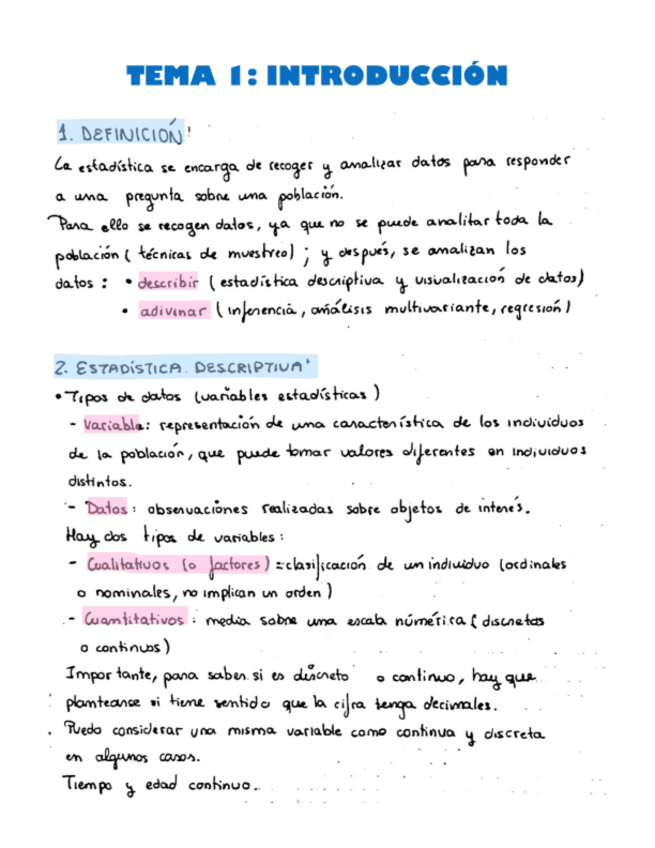 TEMA 1: INTRODUCCIÓN
1. DEFINICIÓN
La estadística se encarga de recoger y analizar datos para responder
a una pregunta sobre una población.
Para ello se recogen datos, ya que no se puede analitar toda la
población (técnicas de muestreo); y después, se analizan los
datos: • describir (estadística descriptiva y visualización de datos)
• adivinar (inferencia, análisis multivariante, regresión)
2. ESTADÍSTICA DESCRIPTIVA
• Tipos de datos (variables estadísticas)
- Variable: representación de una característica de los individuos
de la población, que puede tomar valores diferentes en individuos
distintos.
- Datos: observaciones realizadas sobre objetos de interés.
Hay dos tipos de variables:
- Cualitativos (o factores): clasificación de un individuo (ordinales
o nominales, no implican un orden)
- Cuantitativos: media sobre una escala numérica (discretas
o continuos)
Importante, para saber si es discreto o continuo, hay que
plantearse si tiene sentido que la cifra tenga decimales.
Puedo considerar una misma variable como continua y discreta
en algunos casos.
Tiempo y edad continuo.